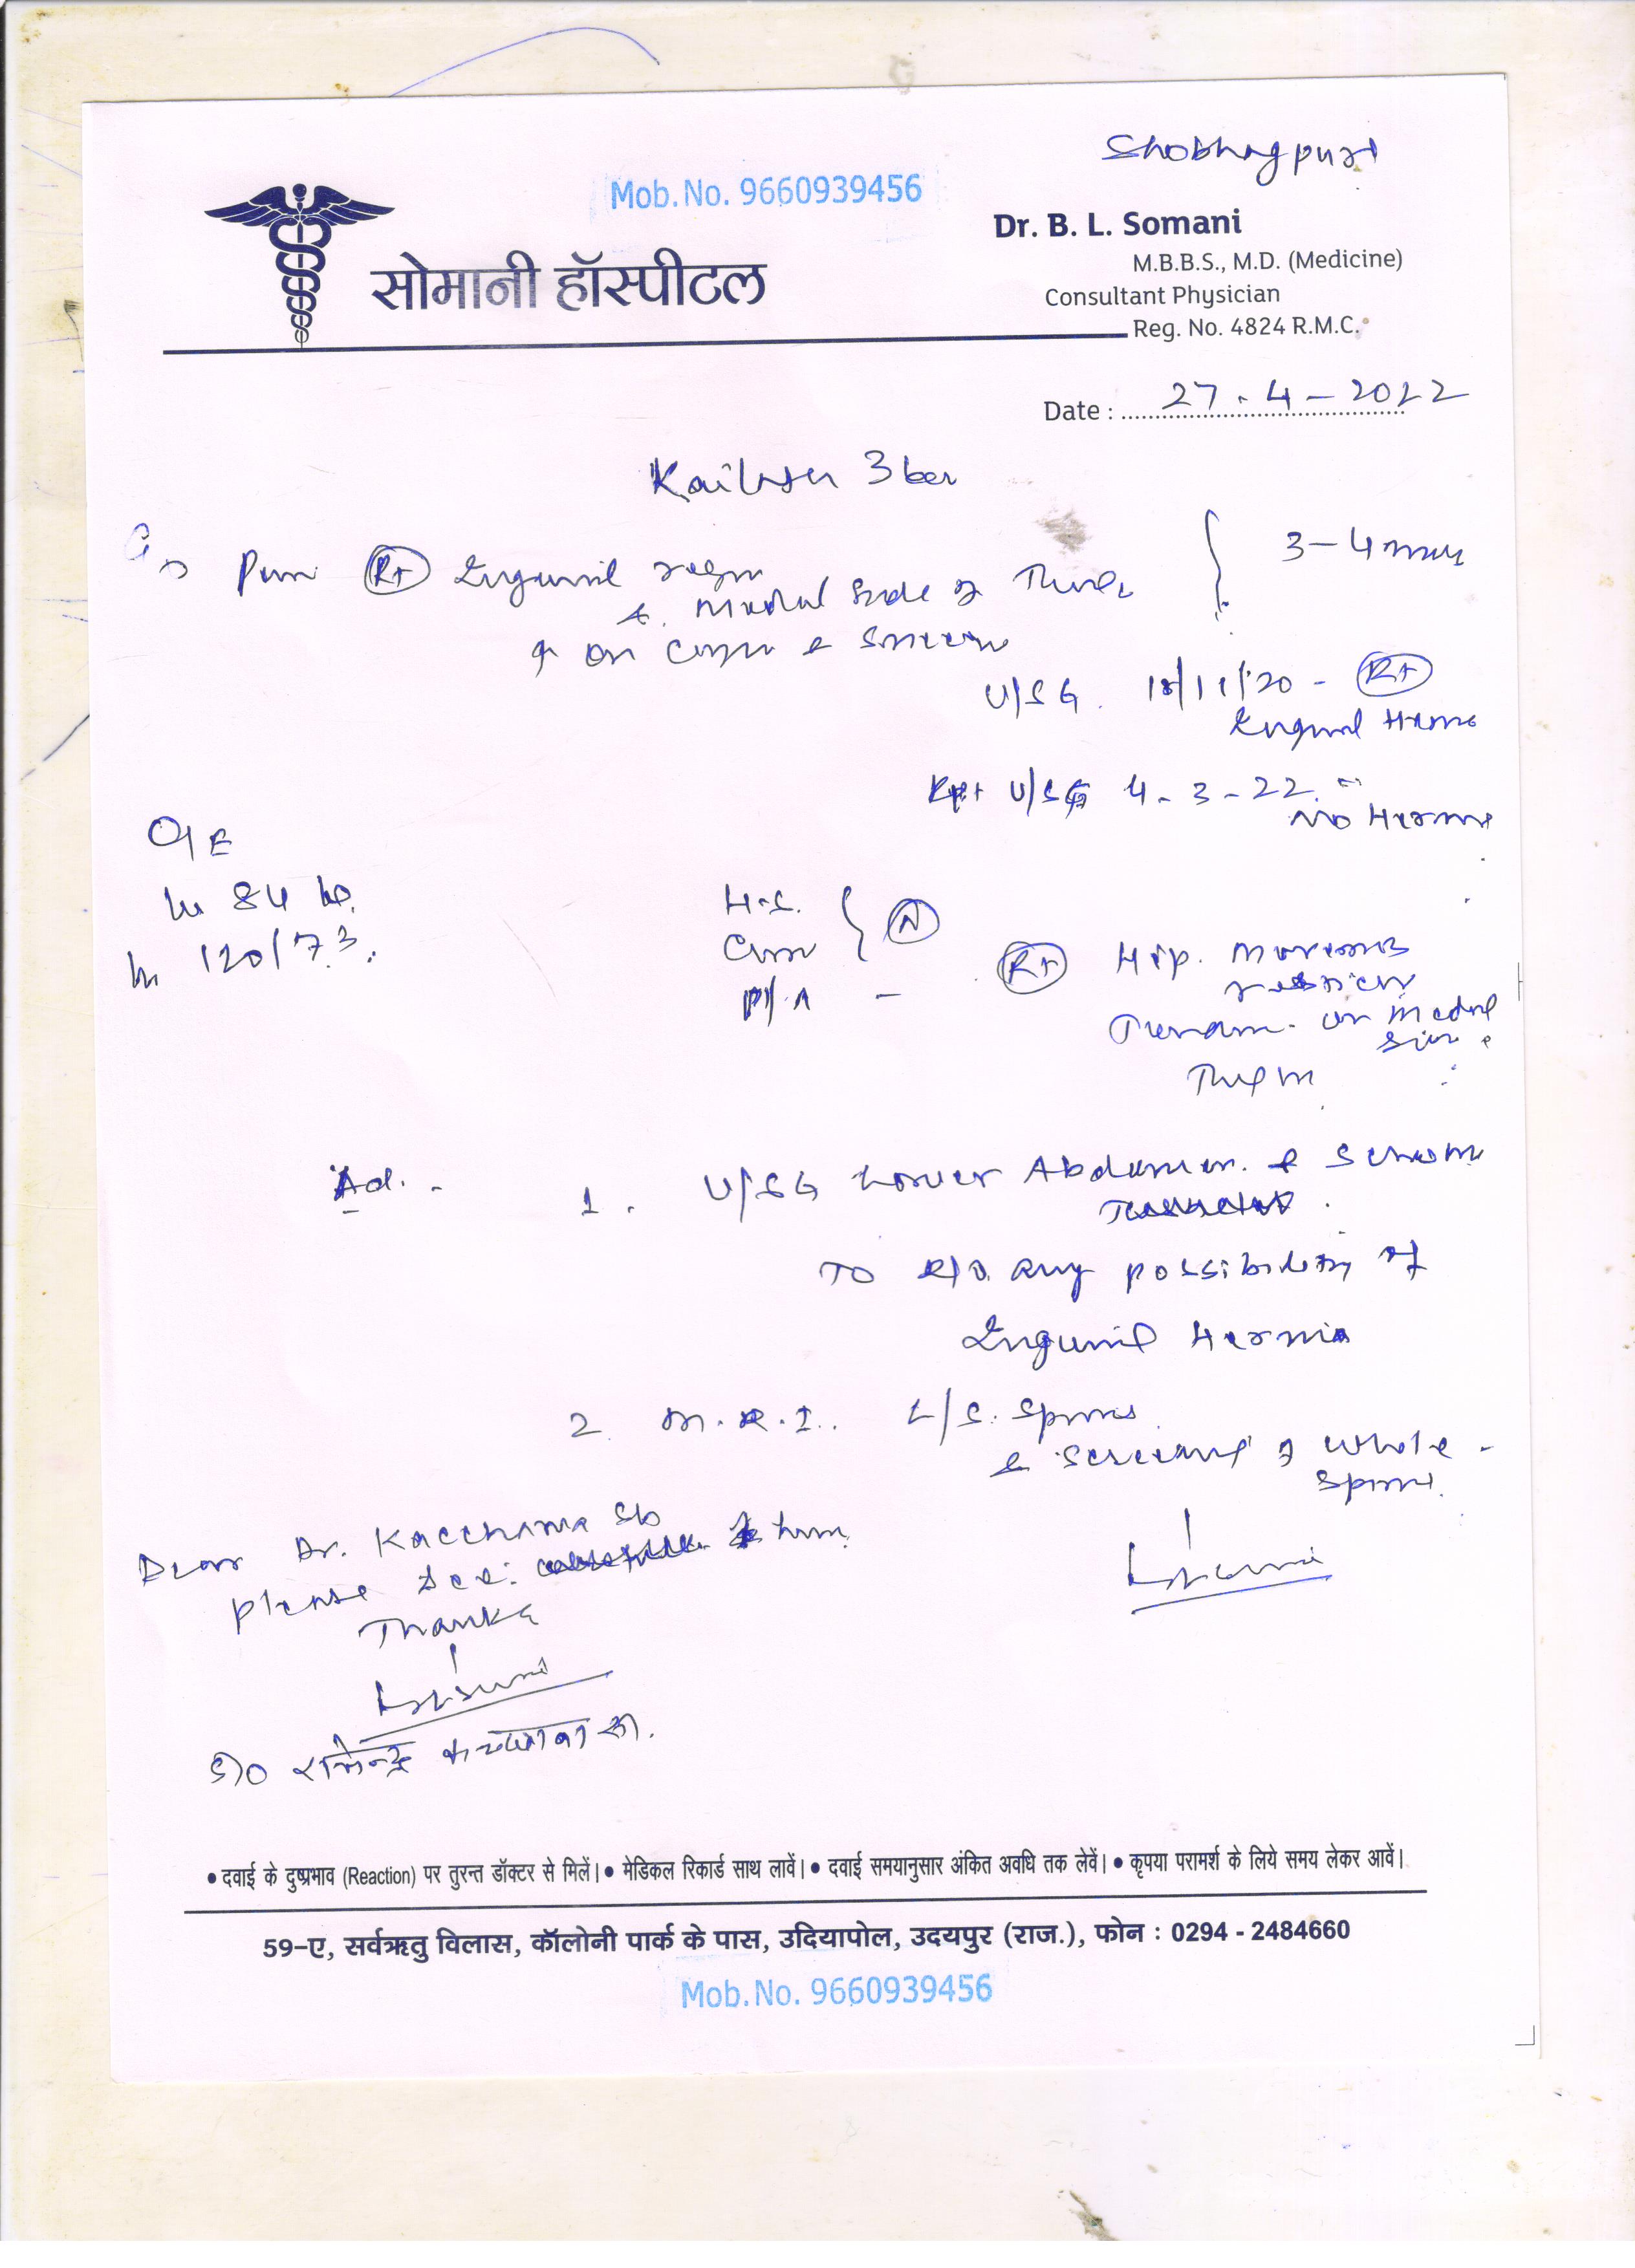 Shobhagpura
Mob. No. 9660939456
Dr. B. L. Somani
M.B.B.S., M.D. (Medicine)
सोमानी हॉस्पीटल
Consultant Physician
Reg. No. 4824 R.M.C.
Date : 27-4-2022
Kailash
Pain Rt Inguinal region
& Medial side of Thigh
3-4
↑ on Cough &
U/SG. 18/11/20 - Rt
Inguinal Hernia
U/SG 4-3-22
No Hernia
O/E
84
120/73.
H.S.
N
P/A -
Rt Hip. Movements
on medial
side
Thigh
Ad. -
1. U/SG Lower Abdomen. & Scrotum
To R/O. any possibility of
Inguinal Hernia
2. M.R.I. L/S. Spine
& Screening of whole
Spine.
Dear Dr. Kacchawa Sb
please see him
Thanks
डॉ०
• दवाई के दुष्प्रभाव (Reaction) पर तुरन्त डॉक्टर से मिलें। • मेडिकल रिकार्ड साथ लावें। • दवाई समयानुसार अंकित अवधि तक लेवें। • कृपया परामर्श के लिये समय लेकर आवें।
59-ए, सर्वऋतु विलास, कॉलोनी पार्क के पास, उदियापोल, उदयपुर (राज.), फोन : 0294 - 2484660
Mob. No. 9660939456